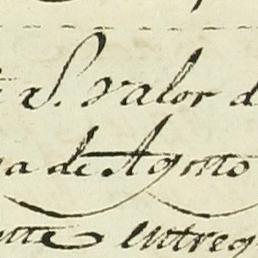 S. valor d
a de Agosto
nte entreg